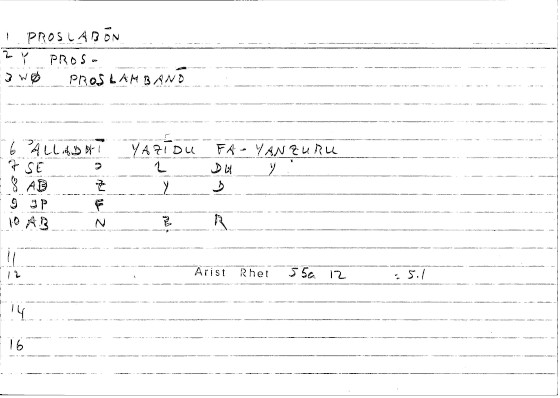 1 PROSLABŌN
2 Y PROS-
3 WØ PROSLAMBANŌ
6 ʾALLADHĪ YAZĪDU FA-YANẒURU
7 SE Ɔ 2 DU Y
8 AB Z Y D
9 JP F
10 AB N Ẓ R
11
12 Arist Rhet 55a 12 = 5.1
14
16